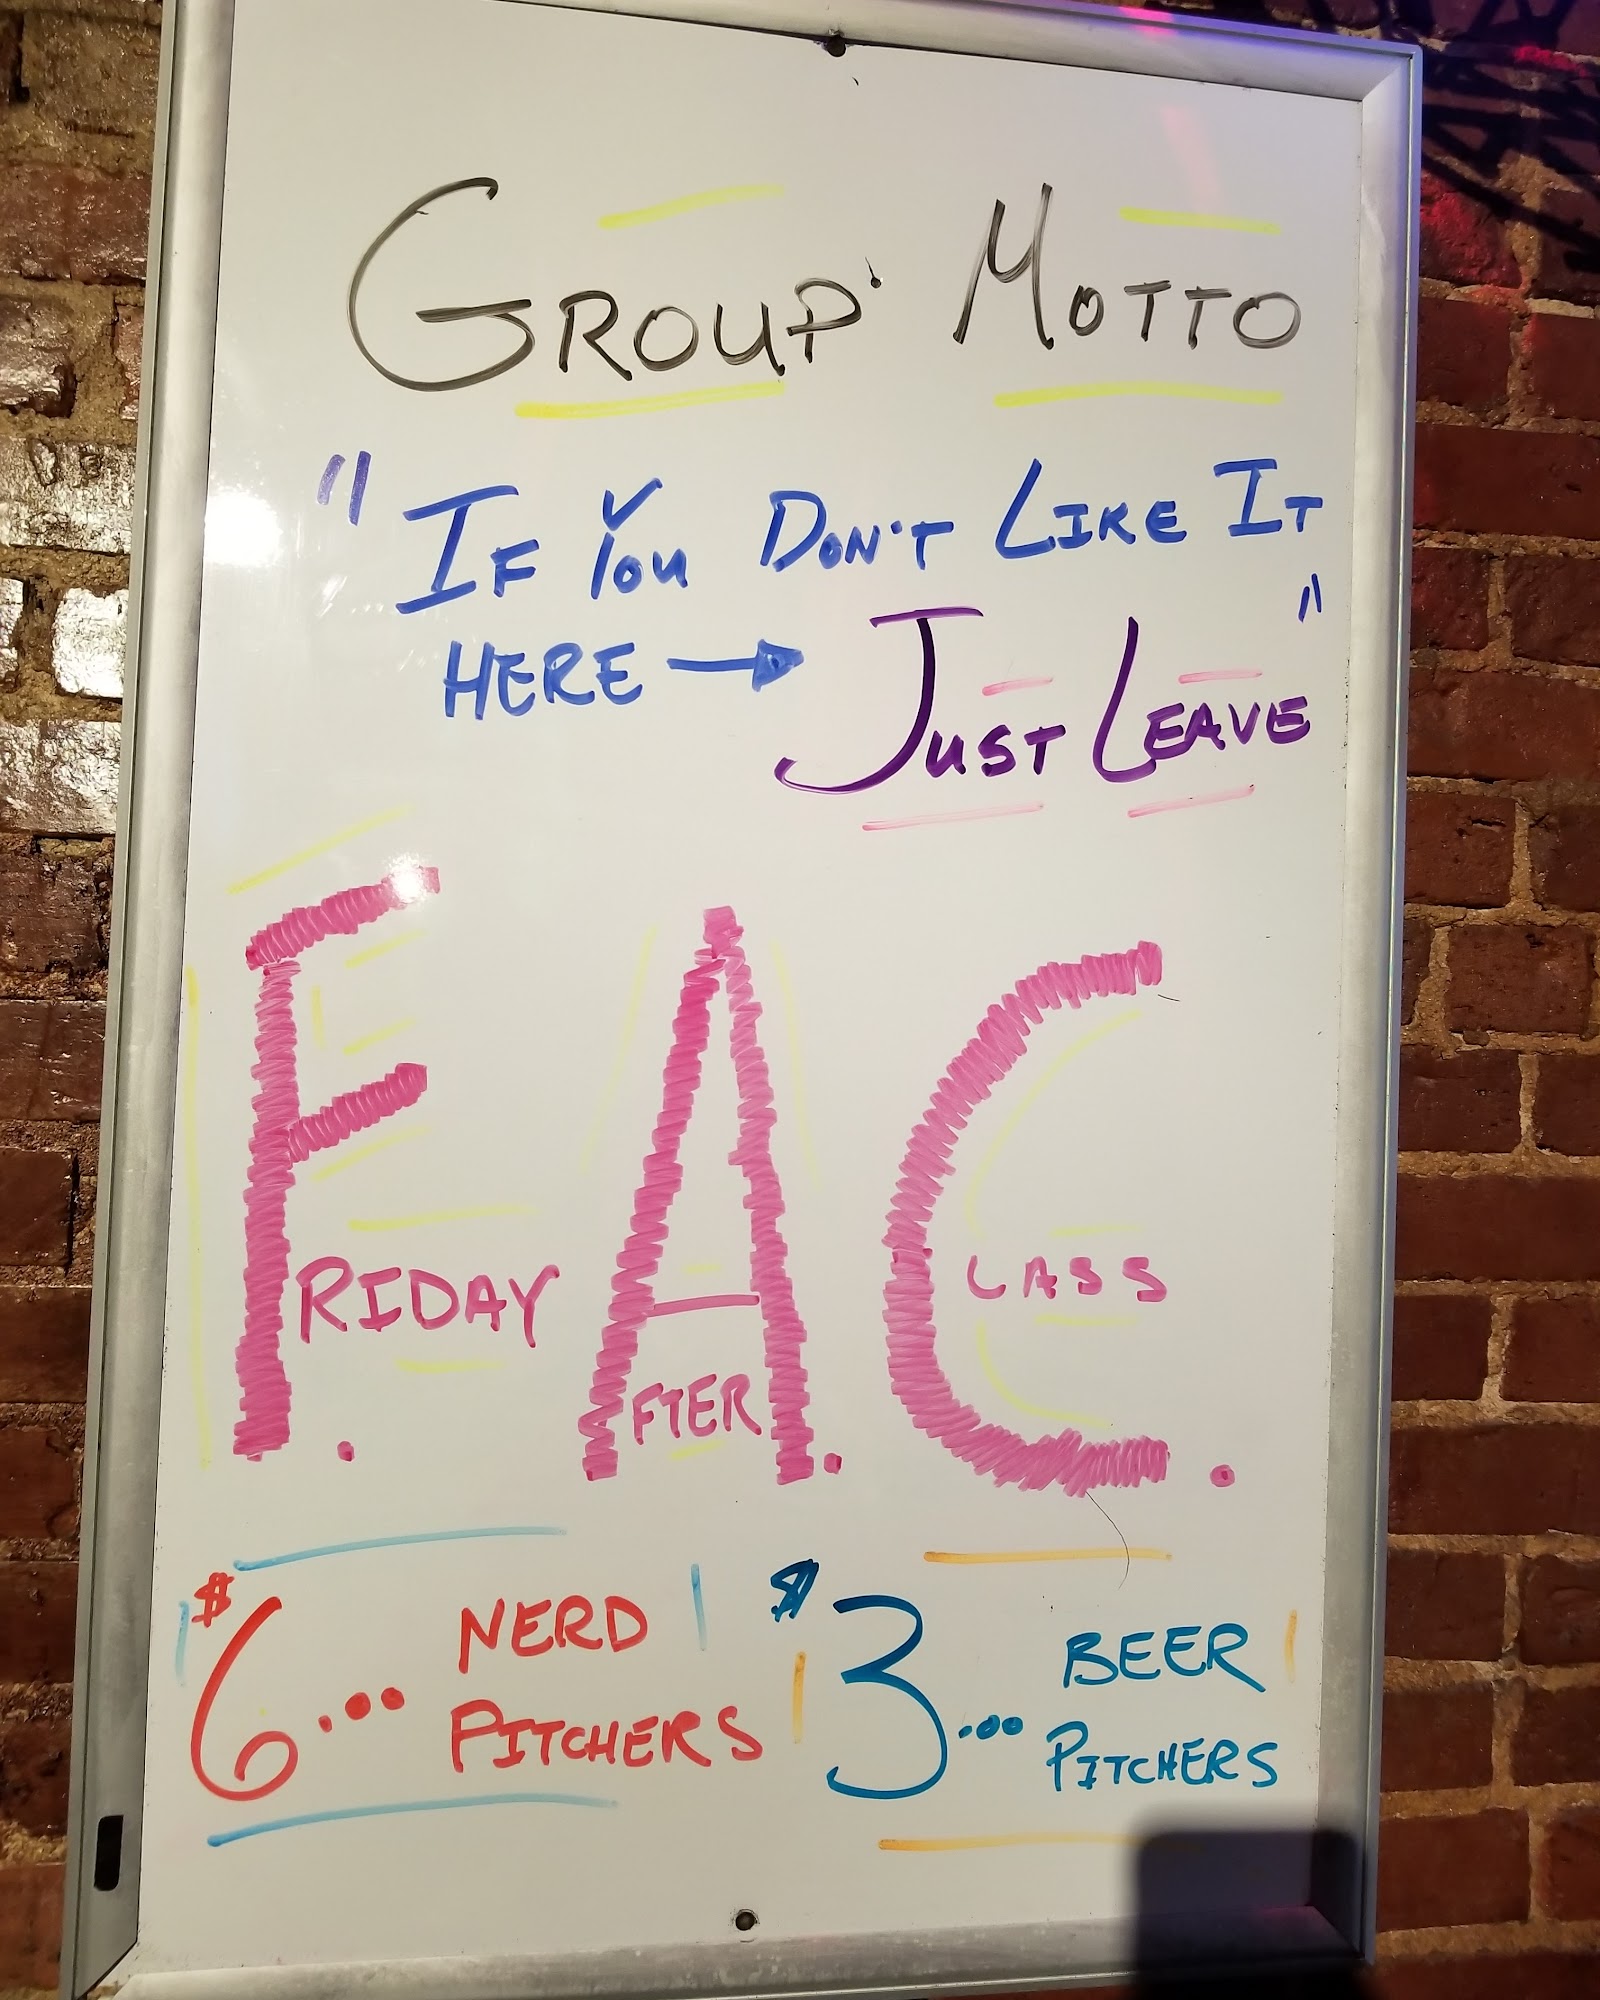 GROUP MOTTO
"IF YOU DON'T LIKE IT
HERE → JUST LEAVE"
F.A.C.
FRIDAY AFTER CLASS
$6... NERD PITCHERS
$3... BEER PITCHERS